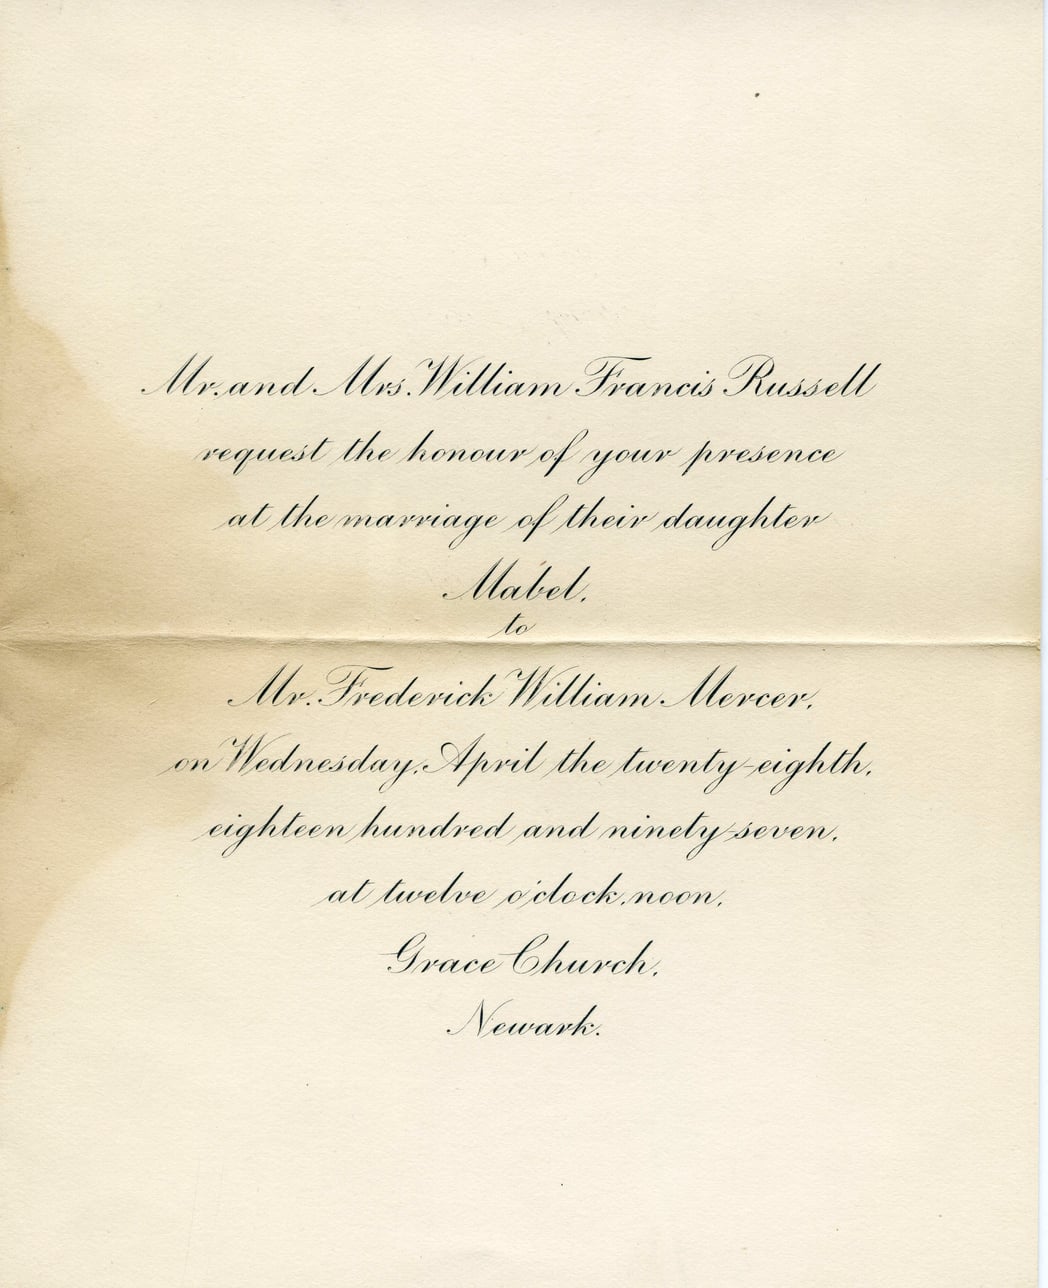 Mr. and Mrs. William Francis Russell
request the honour of your presence
at the marriage of their daughter
Mabel,
to
Mr. Frederick William Mercer,
on Wednesday, April the twenty-eighth,
eighteen hundred and ninety-seven,
at twelve o'clock, noon,
Grace Church,
Newark.